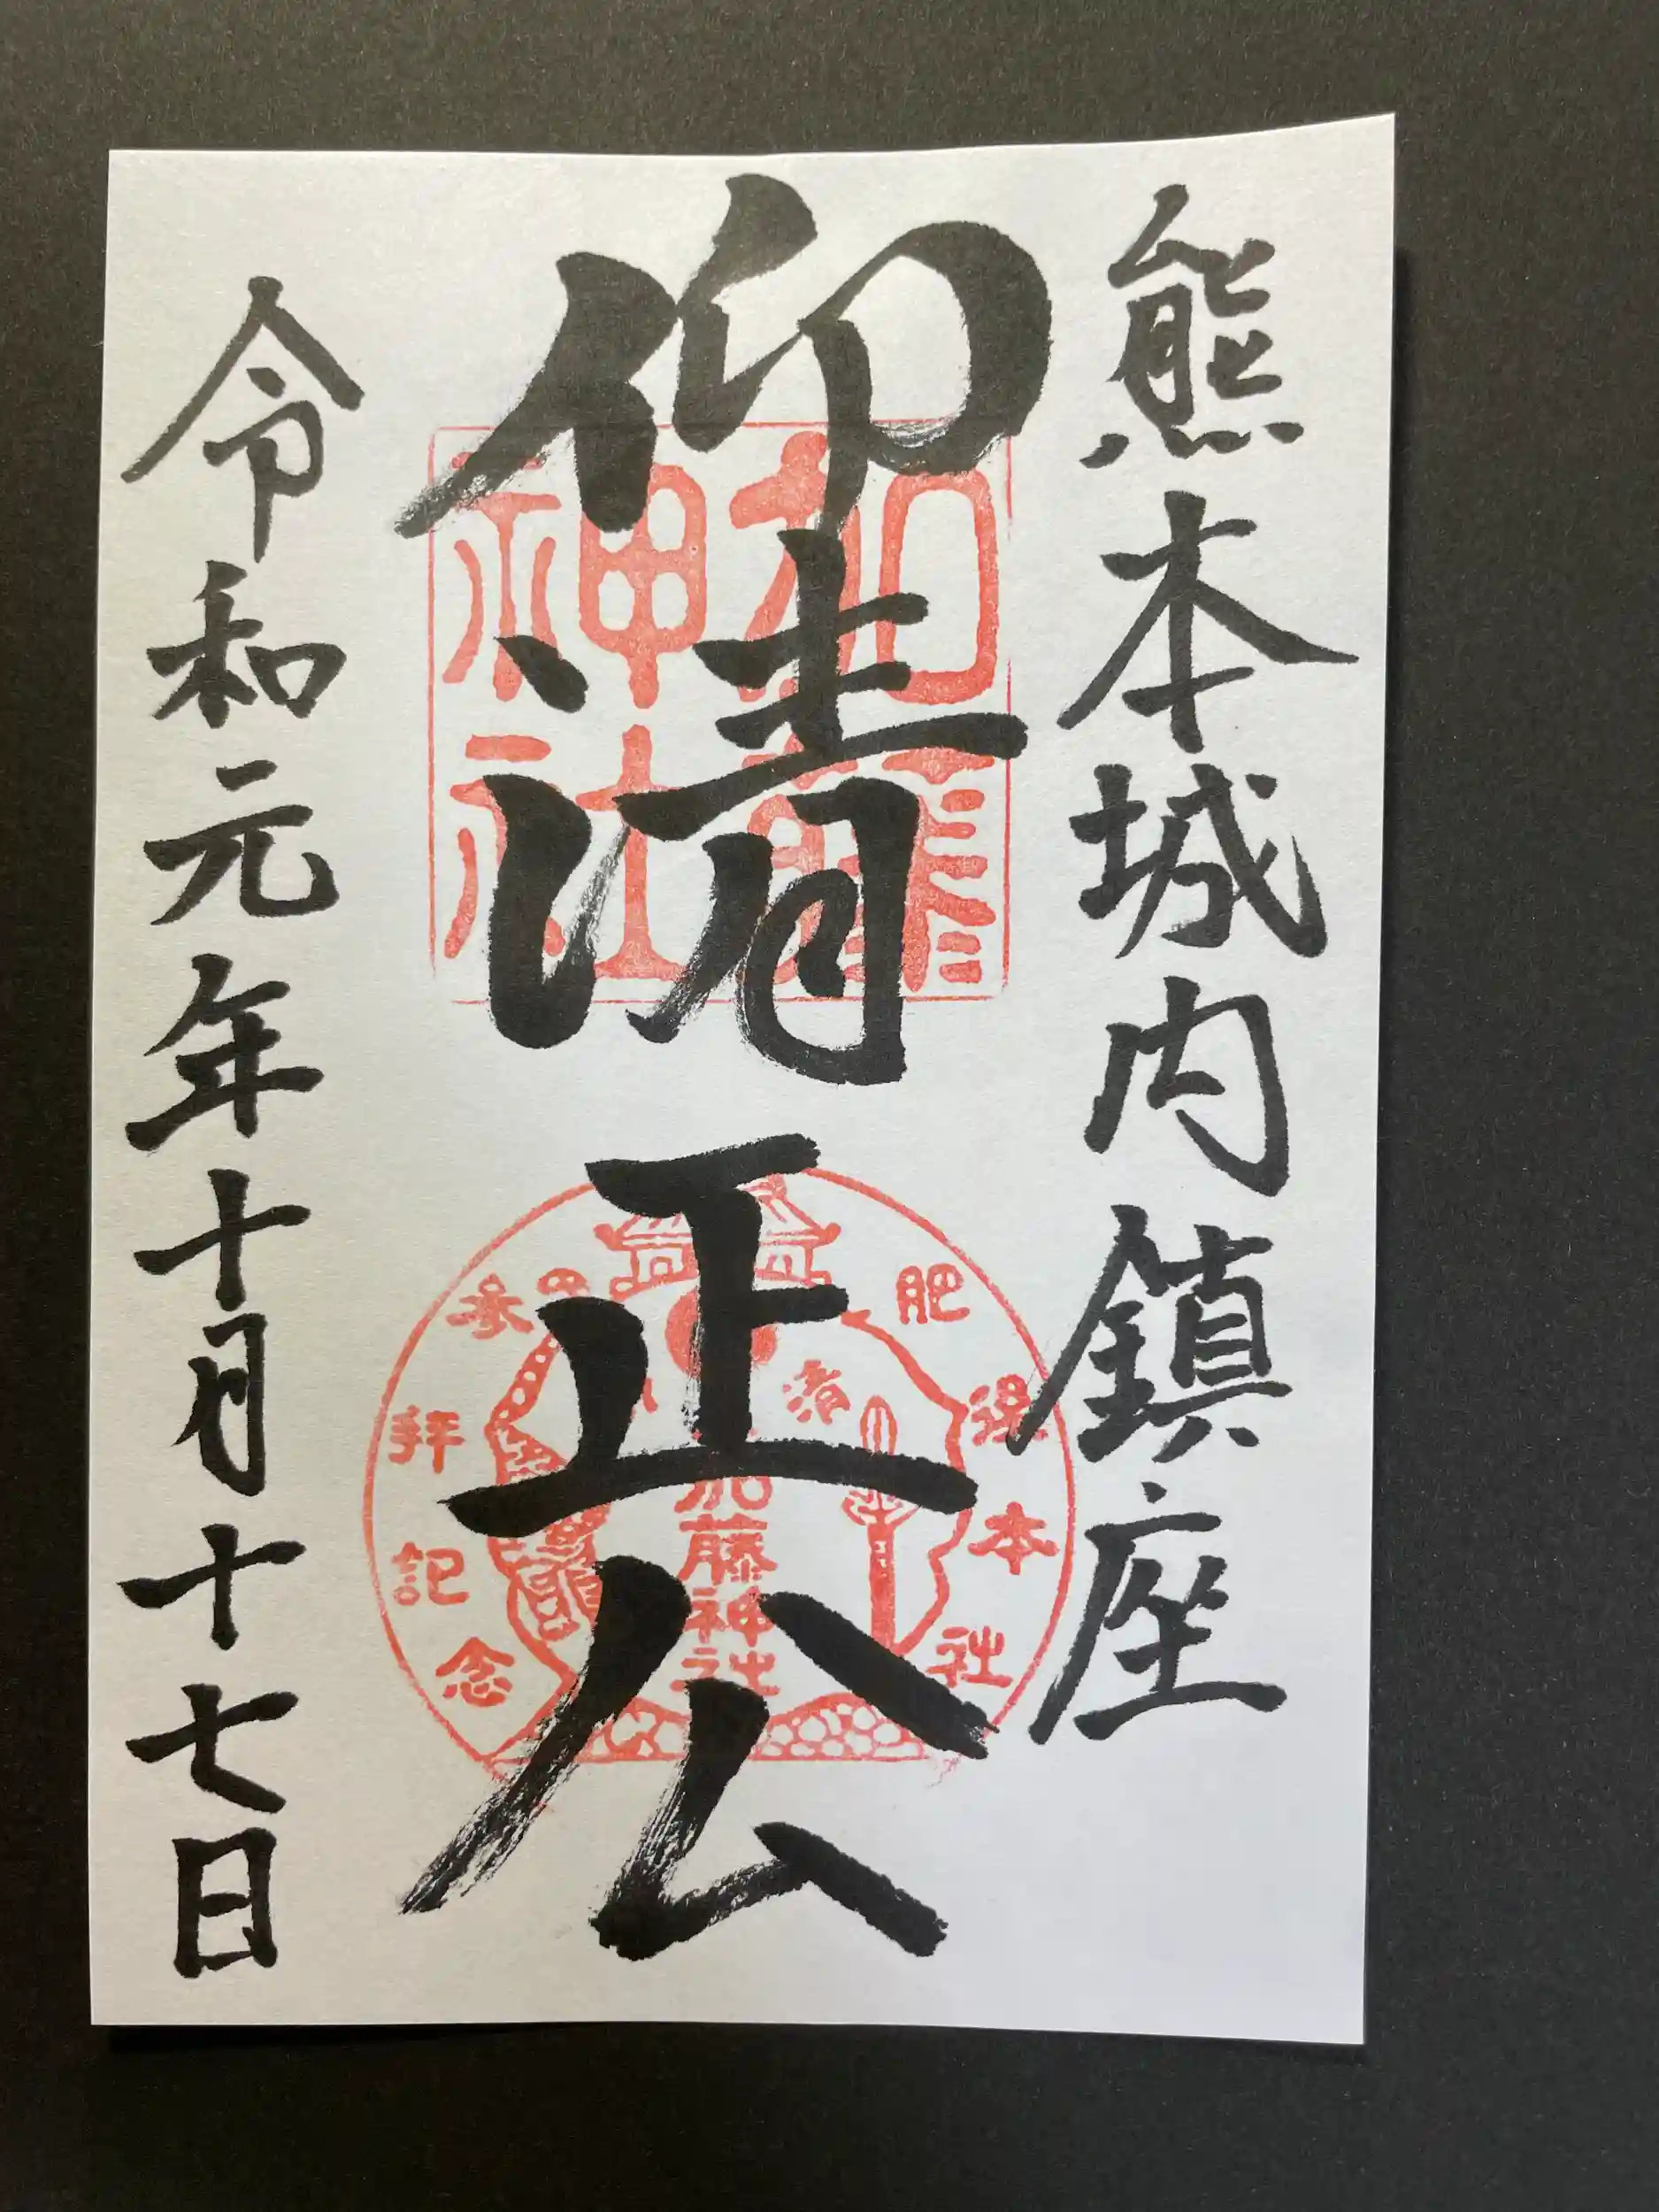 熊本城内鎮座
仰清正公
令和元年十月十七日
加藤神社
肥後本社
参拝記念
清
加藤神社